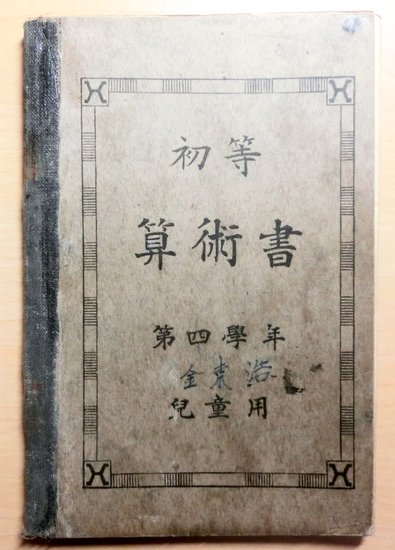 初等
算術書
第四學年
金東
兒童用